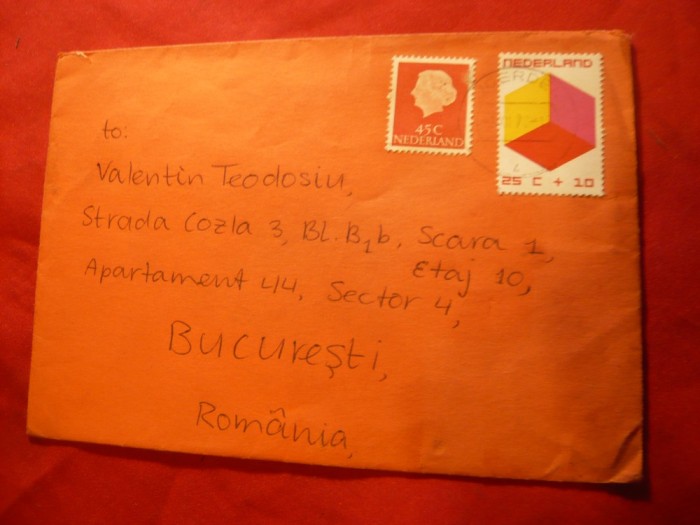 45C
NEDERLAND
NEDERLAND
25 C + 10
to:
Valentin Teodosiu,
Strada Cozla 3, Bl. B1b, Scara 1,
Etaj 10,
Apartament 44, Sector 4,
Bucureşti,
România,